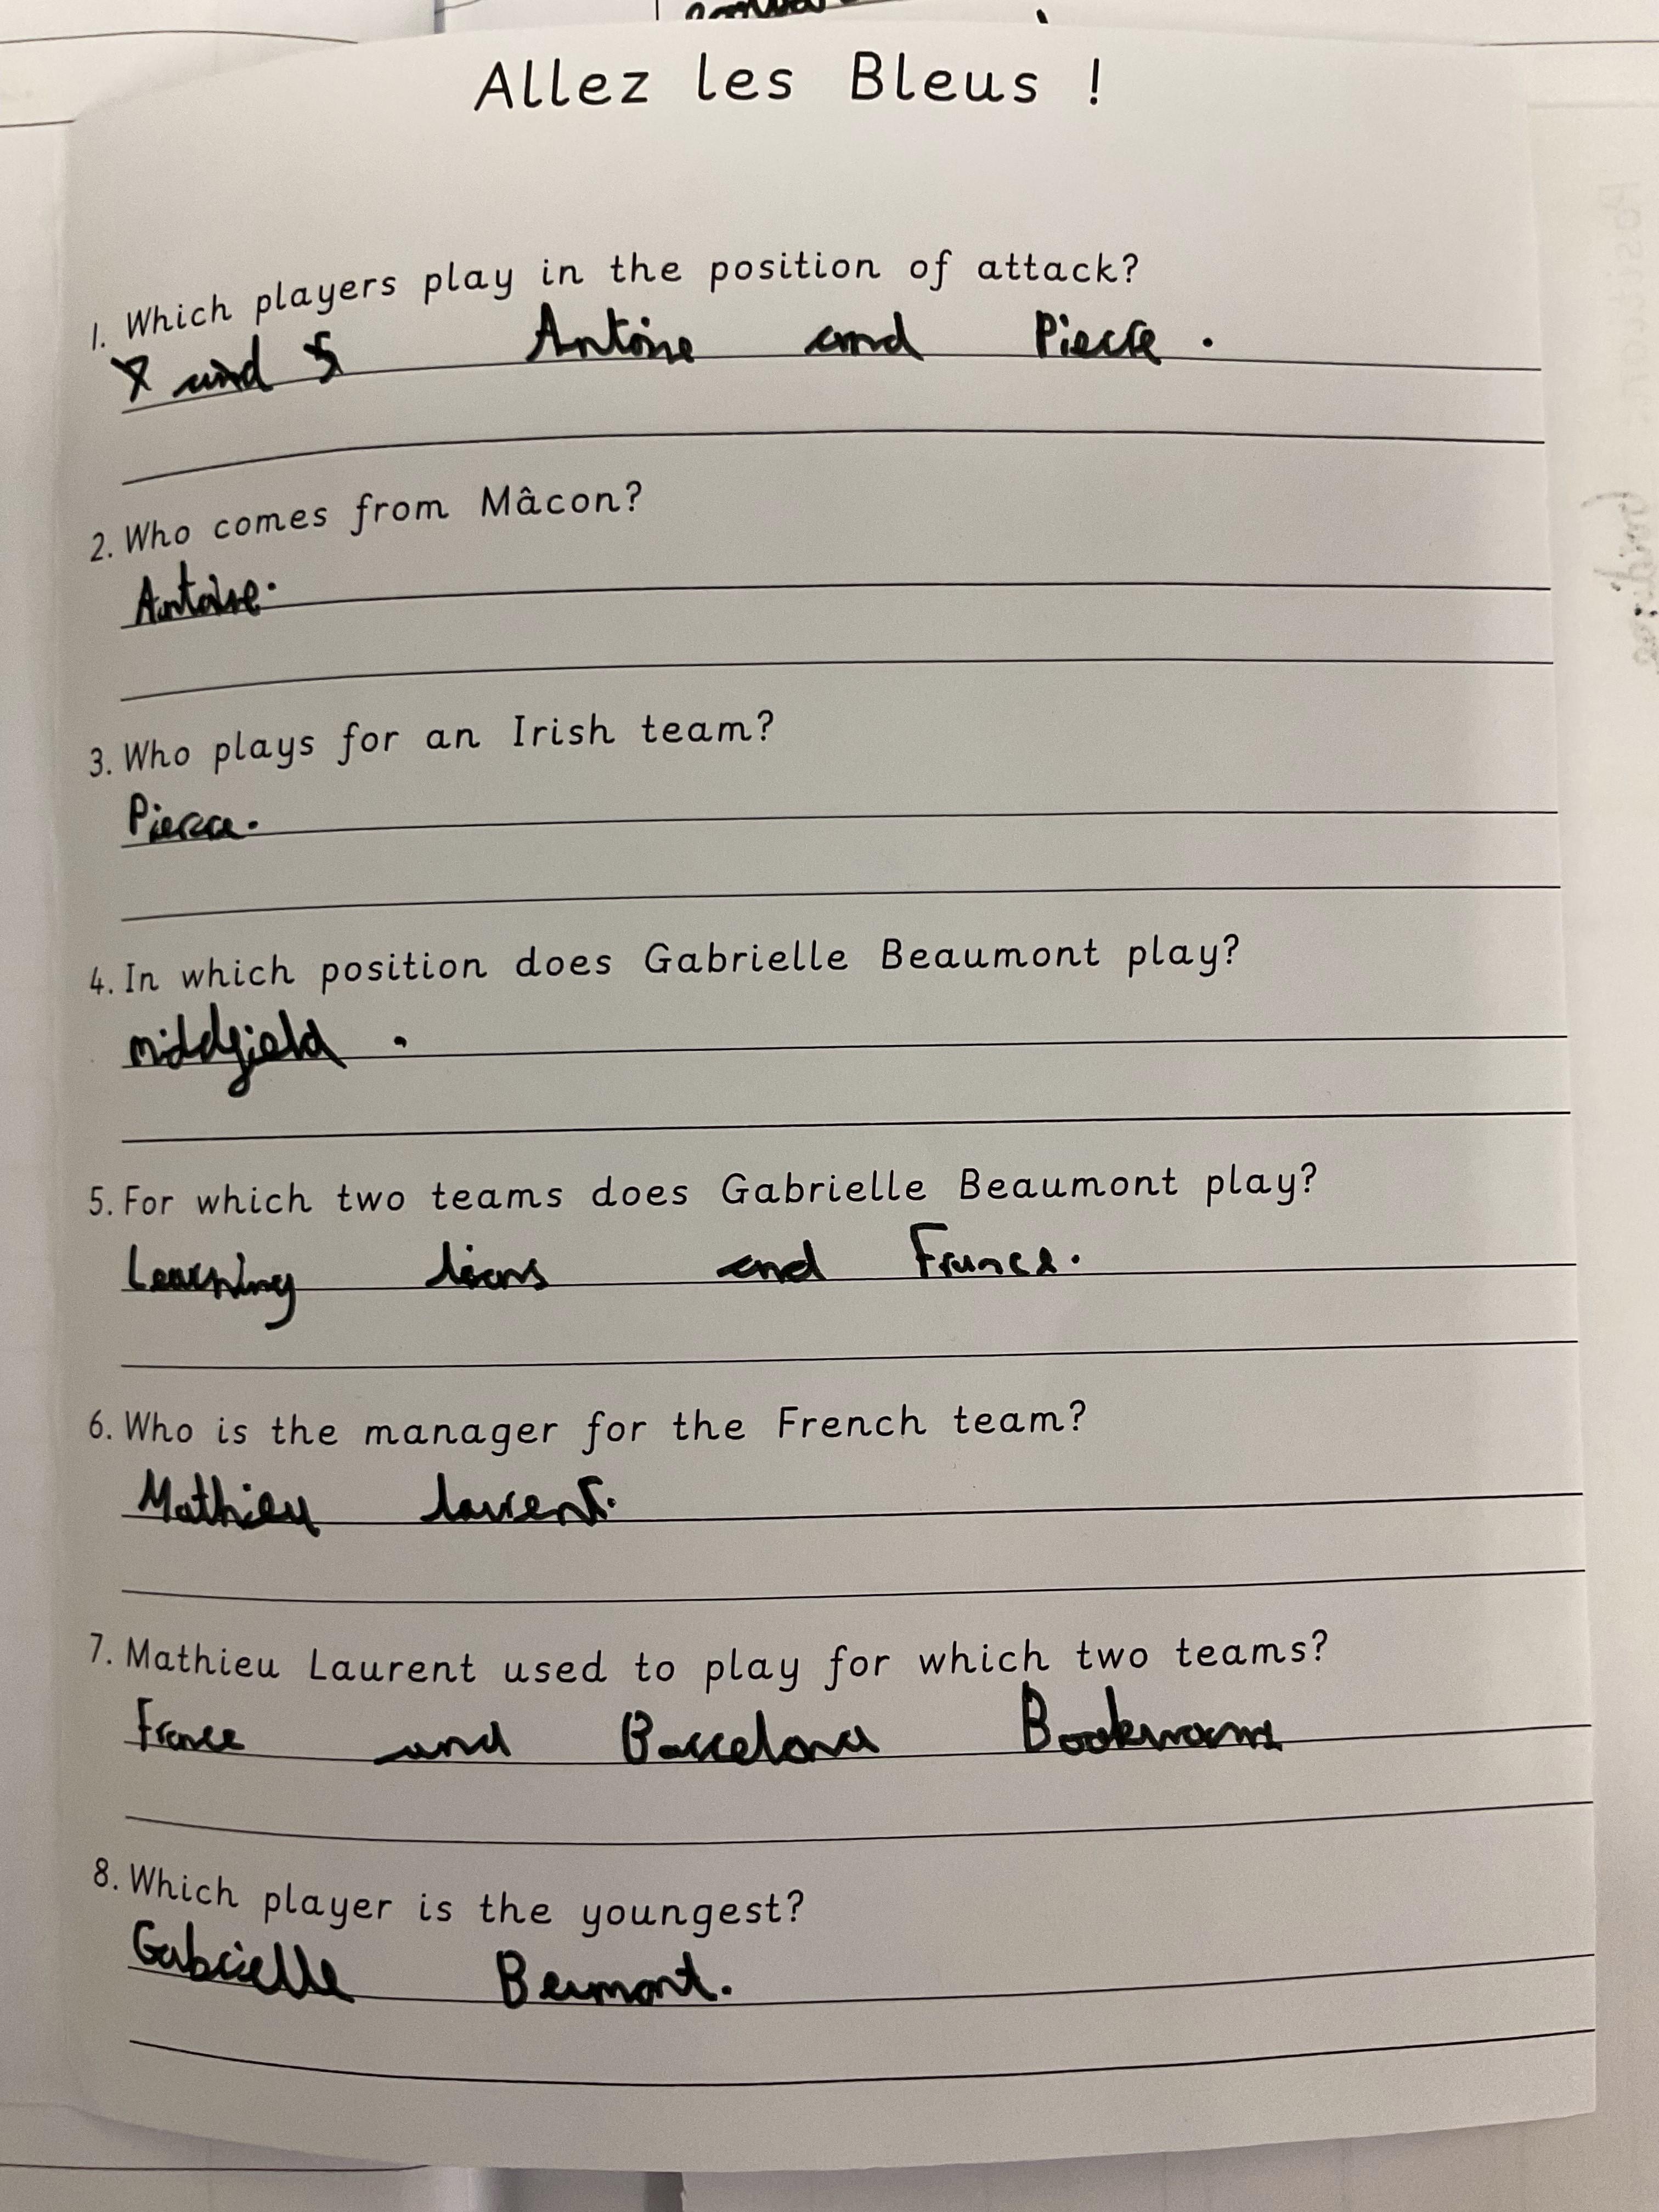 Allez les Bleus !
1. Which players play in the position of attack?
and Antoine and Pierre .
2. Who comes from Mâcon?
Antoine.
3. Who plays for an Irish team?
Pierre.
4. In which position does Gabrielle Beaumont play?
middfield .
5. For which two teams does Gabrielle Beaumont play?
Learning lions and France.
6. Who is the manager for the French team?
Mathieu laurent.
7. Mathieu Laurent used to play for which two teams?
France and Barcelona Bookworms
8. Which player is the youngest?
Gabrielle Beumont.